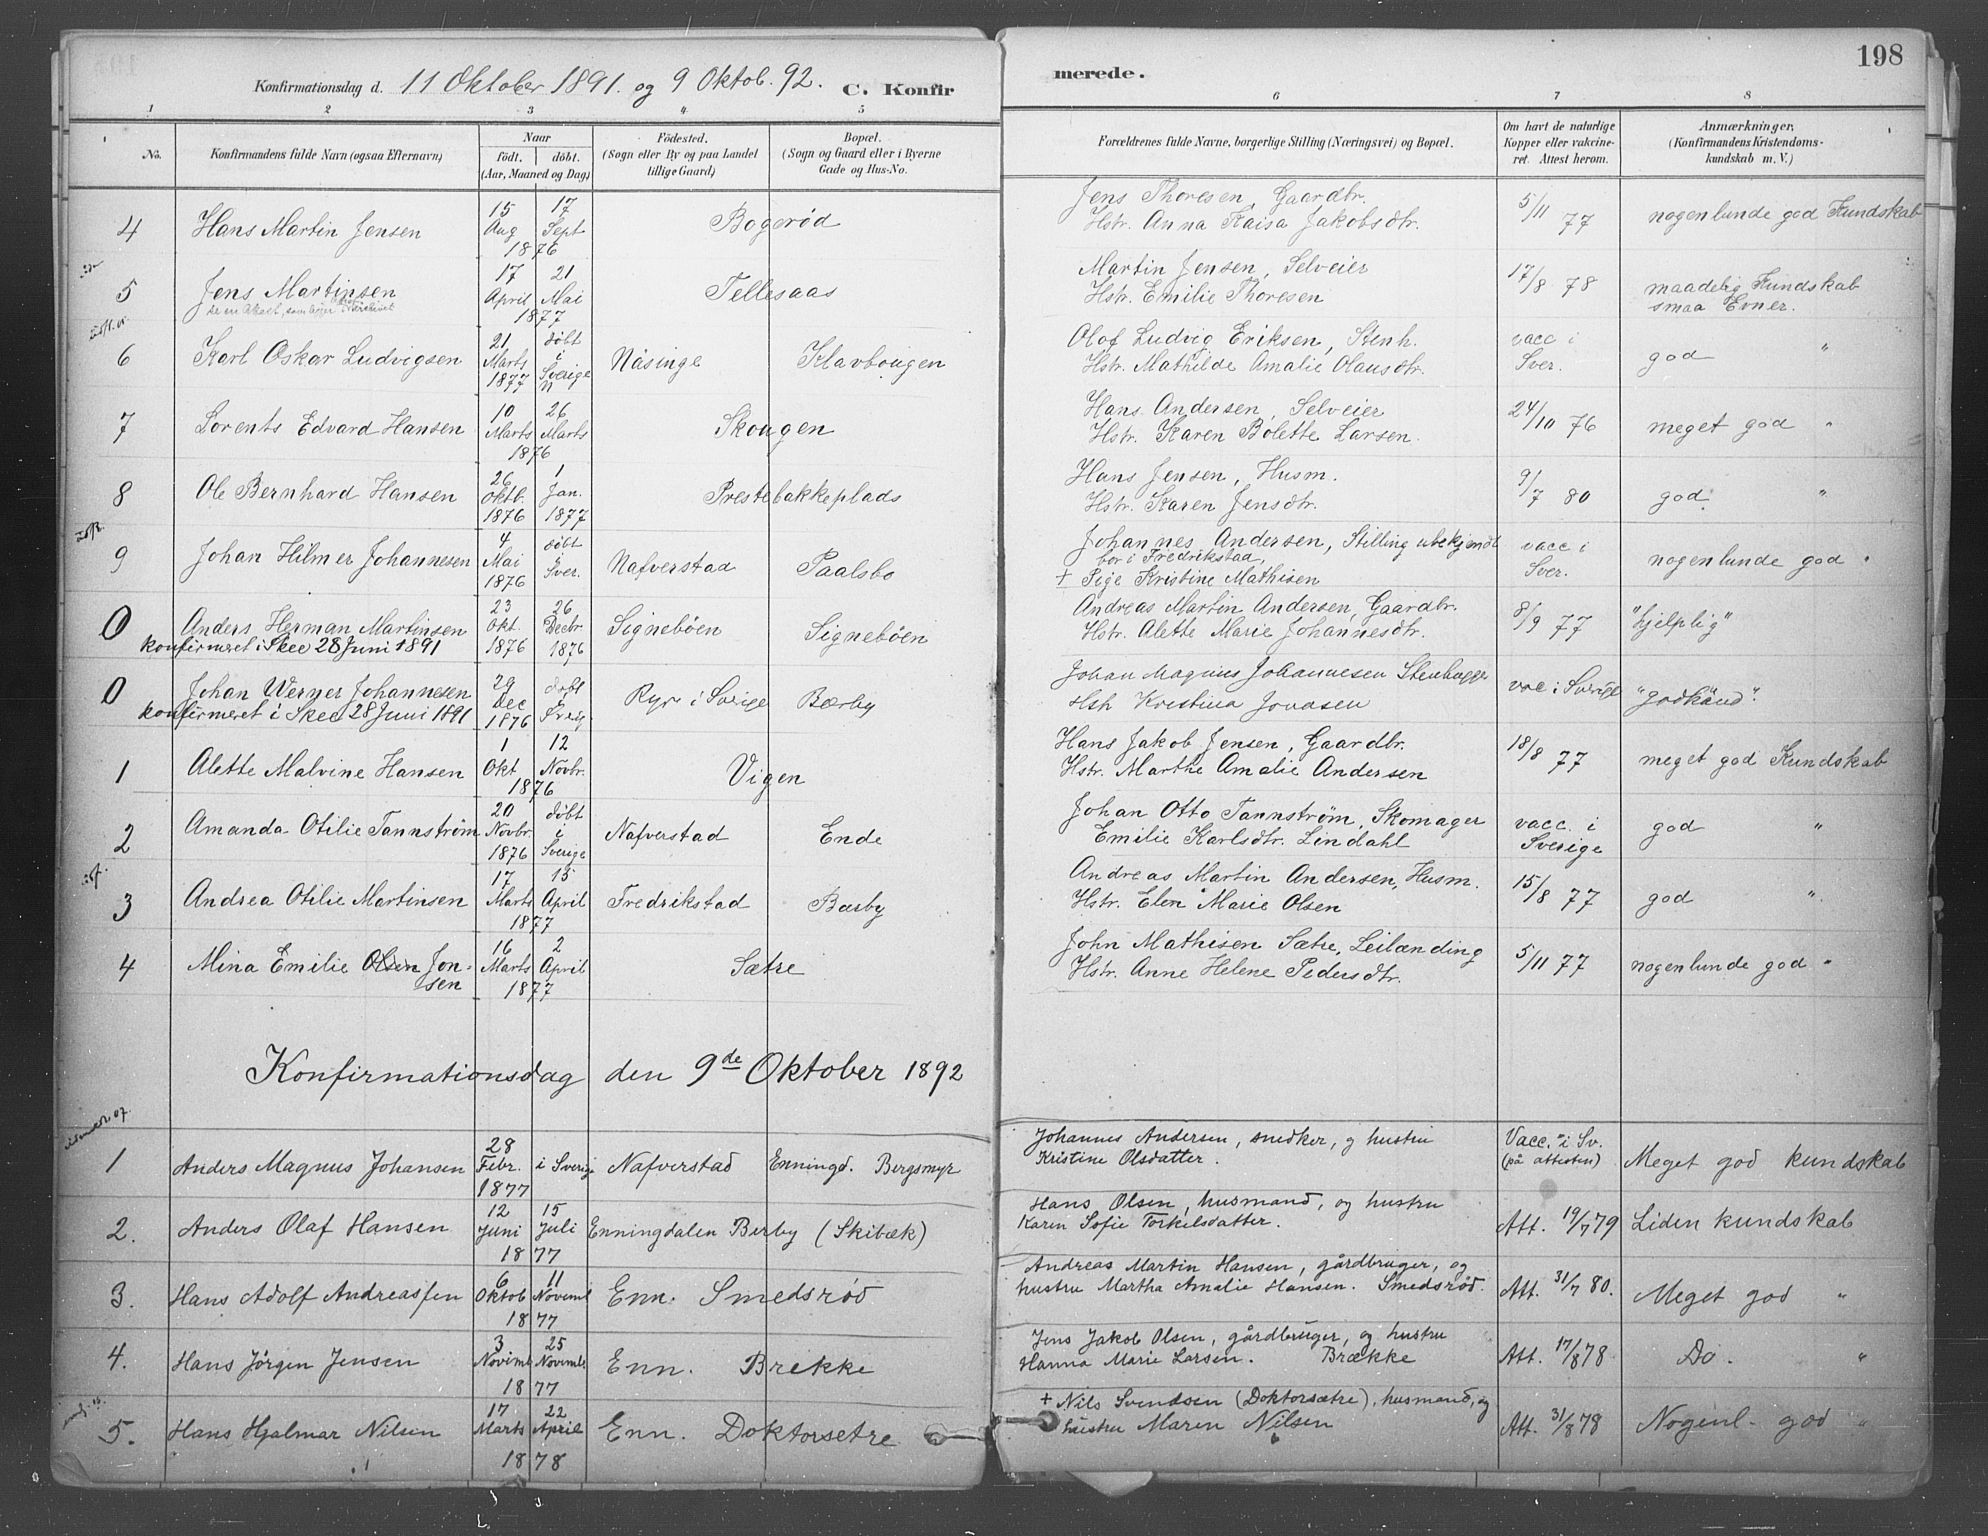 198
Konfirmationsdag d. 11 Oktober 1891. og 9 Oktob. 92. C. Konfir merede.
1 2 3 4 5 6 7 8
No. Konfirmandens fulde Navn (ogsaa Efternavn) Naar født. døbt. (Aar, Maaned og Dag) Fødested. (Sogn eller By og paa Landet tillige Gaard) Bopæl. (Sogn og Gaard eller i Byerne Gade og Hus-No. Forældrenes fulde Navne, borgerlige Stilling (Næringsvei) og Bopæl. Om havt de naturlige Kopper eller vakcineret. Attest herom. Anmærkninger. (Konfirmandens Kristendomskundskab m. V.)
4 Hans Martin Jensen 15 Aug 17 Sept 1876 Bogerød Jens Thoresen, Gaardbr. Hstr. Anna Kaisa Jakobsdtr. 5/11 77 nogenlunde god Kundskab
5 Jens Martinsen 17 April 21 Mai 1877 Tellesaas Martin Jensen, Selveier Hstr. Emilie Thoresen 17/8 78 maadelig Kundskab smaa Evner.
6 Karl Oskar Ludvigsen 21 Marts 1877 døbt i Sverige Näsinge Klavbougen Olof Ludvig Eriksen, Stenh. Hstr. Mathilde Amalie Olausdtr. vacc i Sver. god "
7 Lorents Edvard Hansen 10 Marts 26 Marts 1876 Skougen Hans Andersen, Selveier Hstr. Karen Bolette Larsen. 24/10 76 meget god "
8 Ole Bernhard Hansen 26 Oktb. 1876 1 Jan. 1877 Prestebakkeplads Hans Jensen, Husm. Hstr. Karen Jensdtr. 9/7 80 god "
9 Johan Hilmer Johannesen 4 Mai 1876 døbt i Sver. Nafverstad Paalsbo Johannes Andersen, Stilling ubekjendt bor i Fredrikstad + Pige Kristine Mathisen vacc i Sver. nogenlunde god "
0 Anders Herman Martinsen konfirmeret i Skee 28 Juni 1891 23 Okt. 1876 26 Decbr. 1876 Signebøen Signebøen Andreas Martin Andersen, Gaardbr. Hstr. Alette Marie Johannesdtr. 8/9 77 "hjelplig"
0 Johan Werner Johannesen konfirmeret i Skee 28 Juni 1891 29 Dec 1876 døbt Ryr i Sverige Bærby Johan Magnus Johannesen Stenhugger Hst Kristina Jonasen vac i Sverige "godkänd".
1 Alette Malvine Hansen 1 Okt 12 Novbr. 1876 Vigen Hans Jakob Jensen, Gaardbr. Hstr. Marthe Amalie Andersen 18/8 77 meget god Kundskab
2 Amanda Otilie Tannstrøm 20 Novbr. 1876 døbt i Sverige Nafverstad Ende Johan Otto Tannstrøm, Skomager Emilie Karlsdtr. Lindahl vacc. i Sverige god "
3 Andrea Otilie Martinsen 17 Marts 15 April 1877 Fredrikstad Bærby Andreas Martin Andersen, Husm. Hstr. Elen Marie Olsen 15/8 77 god "
4 Mina Emilie Olsen Jonsen 16 Marts 2 April 1877 Sætre John Mathisen Sætre, Leilænding Hstr. Anne Helene Pedersdtr. 5/11 77 nogenlunde god "
Konfirmationsdag den 9de Oktober 1892
1 Anders Magnus Johansen 28 Febr. 1877 i Sverige Nafverstad Enningd. Bergsmyr Johannes Andersen, snedker, og hustru Kristine Olsdatter. Vacc. i Sv. (på attesten) Meget god kundskab
2. Anders Olaf Hansen 12 Juni 15 Juli 1877 Enningdalen Berby (Skibæk) Hans Olsen, husmand, og hustru Karen Sofie Torkilsdatter. Att. 19/7 79 Liden kundskab
3. Hans Adolf Andreassen 6 Oktob 11 Novemb 1877 Enn. Smedsrød Andreas Martin Hansen, gårdbruger, og hustru Martha Amalie Hansen. Smedsrød. Att. 31/7 80. Meget god "
4. Hans Jørgen Jensen 3 Novemb. 25 Novemb. 1877 Enn. Brekke Jens Jakob Olsen, gårdbruger, og hustru Hanna Marie Larsen. Brække Att. 17/8 78 Do. "
5. Hans Hjalmar Nilsen 17 Marts 22 April 1878 Enn. Doktorsetre + Nils Svendsen (Doktorsætre), husmand, og hustru Maren Nilsen Att. 31/8 78 Nogenl. god "